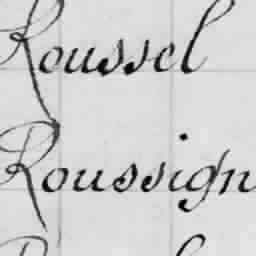 Roussel
Roussign